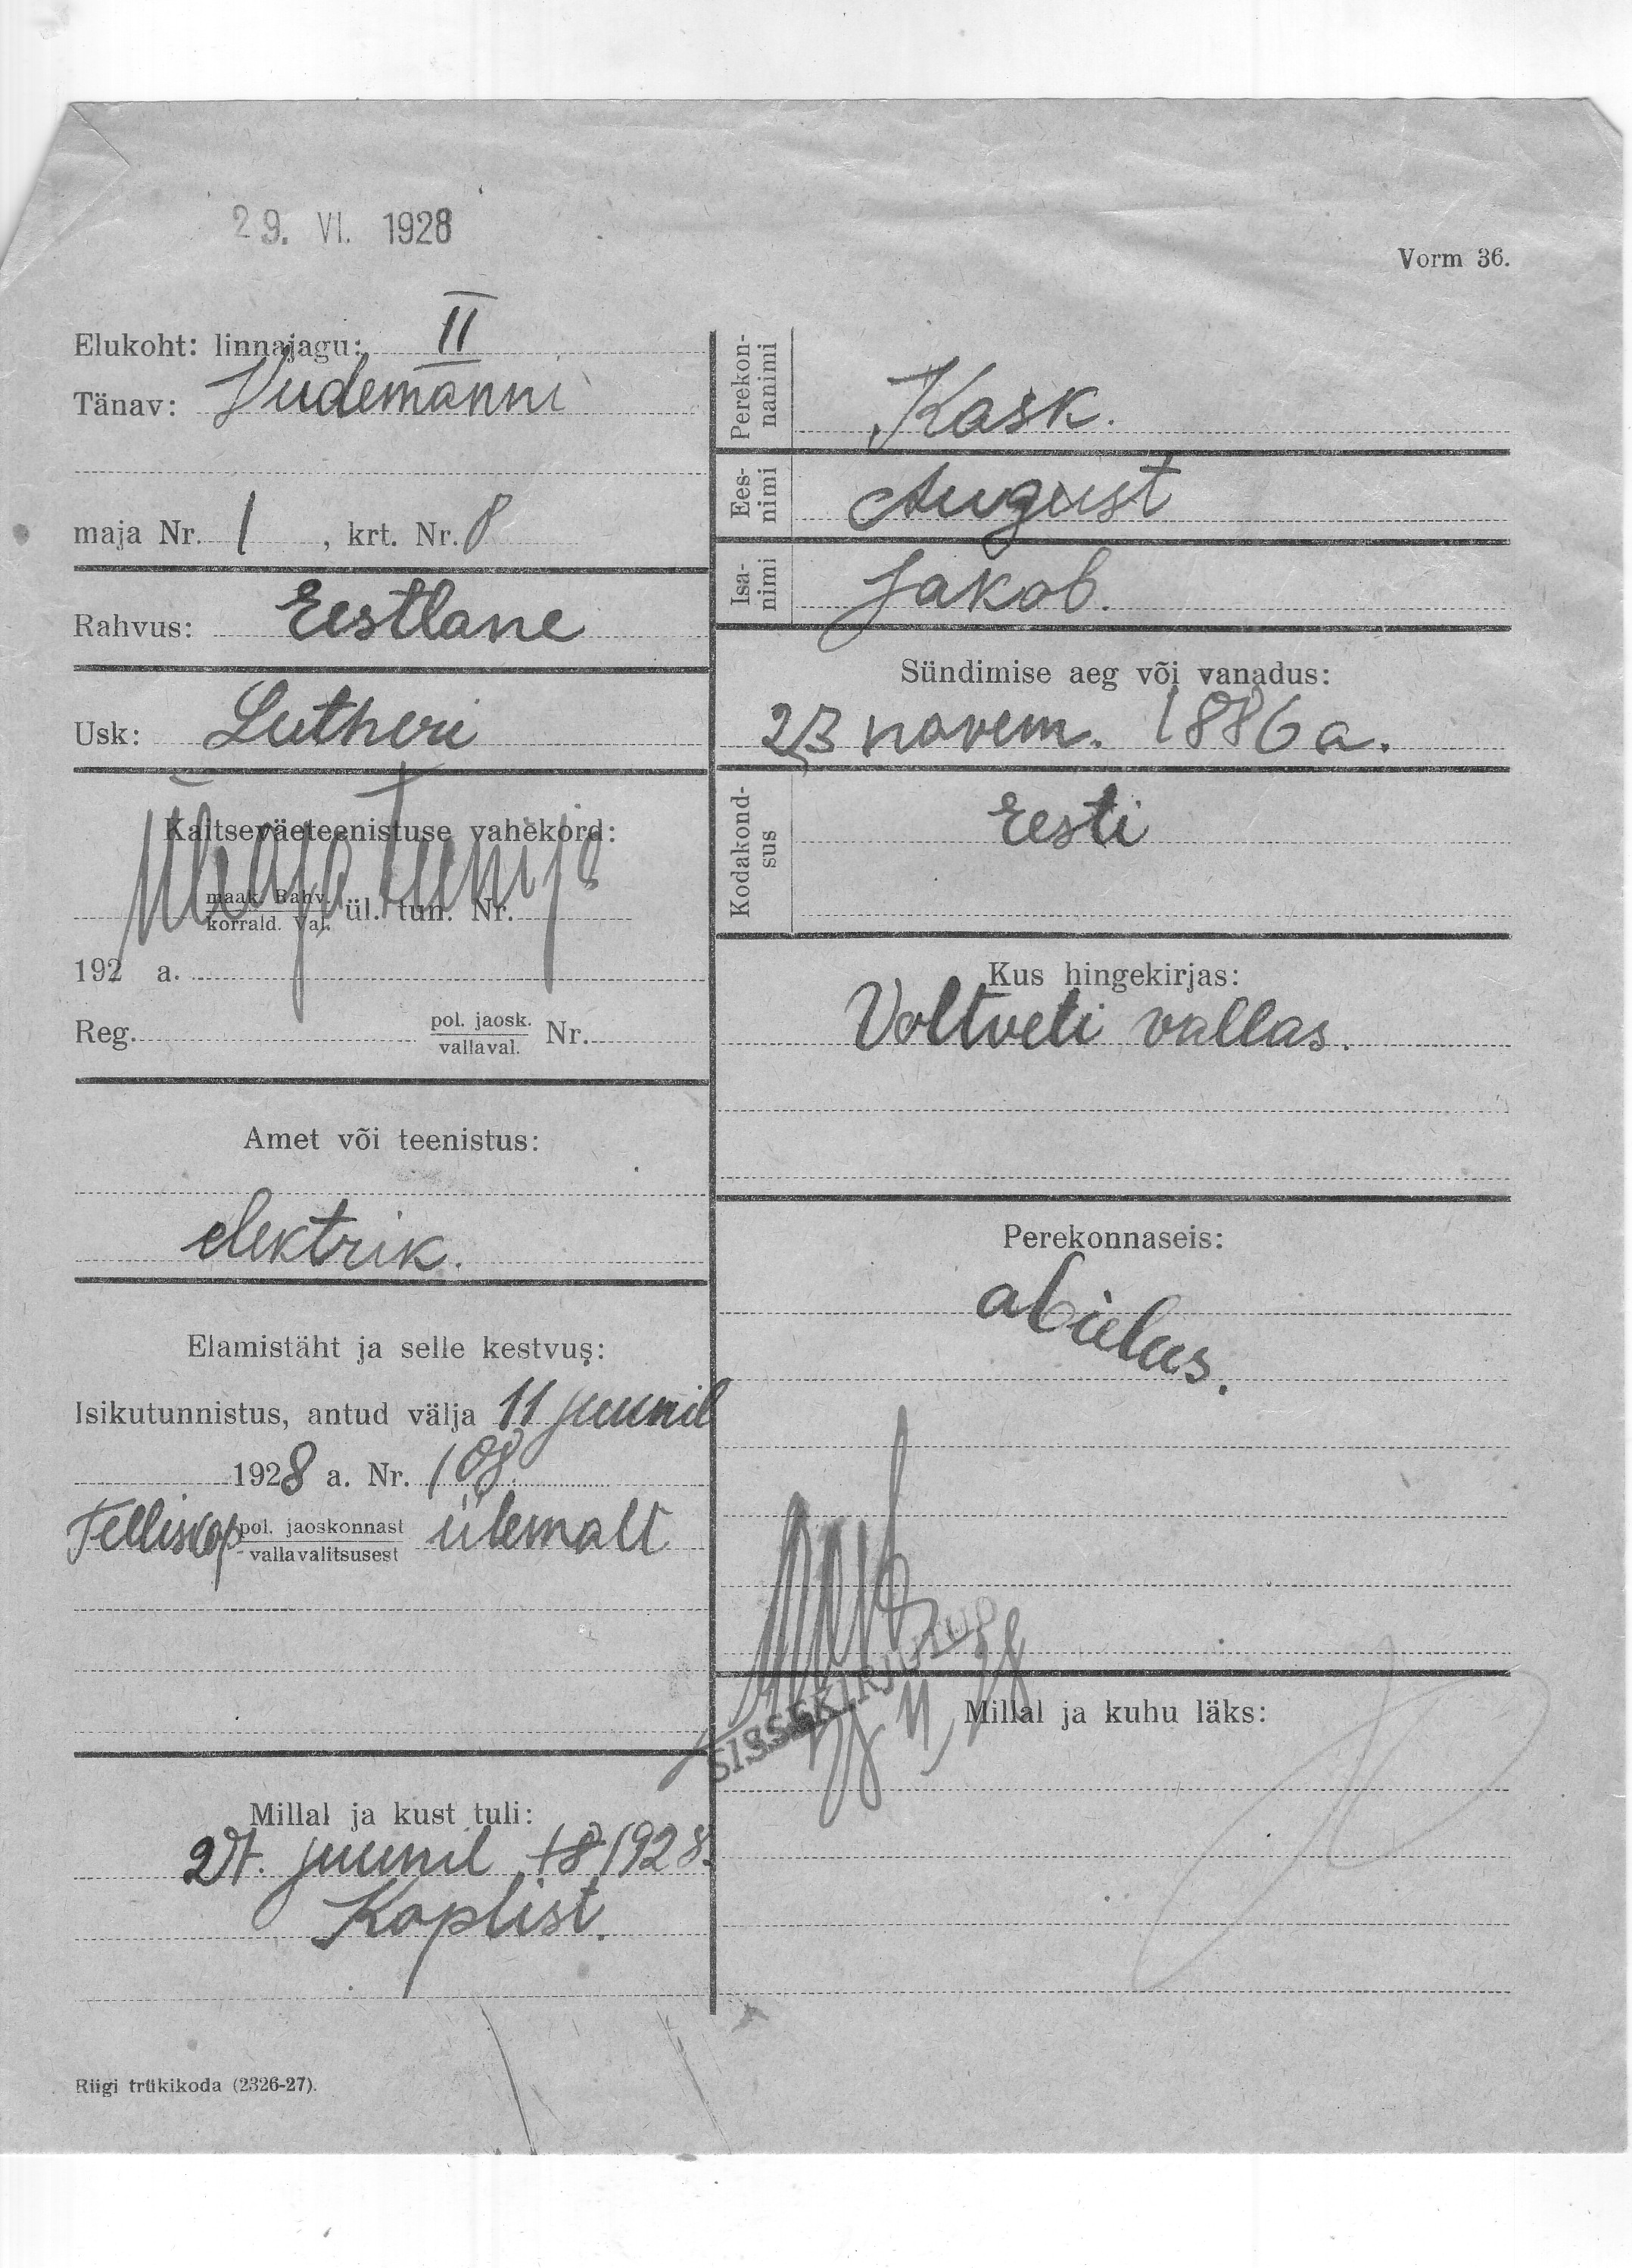 29. VI. 1928
Vorm 36.
Elukoht: linnajagu: II
Tänav: Vudemanni
maja Nr. 1, krt. Nr. 8
Rahvus: Eestlane
Usk: Lutheri
Kaitseväeteenistuse vahekord:
maak. Rahv.
korrald. Val. ül. tun. Nr.
192 a.
Reg. pol. jaosk.
vallaval. Nr.
Amet või teenistus:
elektrik.
Elamistäht ja selle kestvus:
Isikutunnistus, antud välja 11 juunil
1928 a. Nr. 108
pol. jaoskonnast
vallavalitsusest ülemalt
Millal ja kust tuli:
27. juunil 1928.
Koplist.
Riigi trükikoda (2326-27).
Perekon-
nanimi
Kask.
Ees-
nimi
August
Isa-
nimi
Jakob.
Sündimise aeg või vanadus:
23 novem. 1886 a.
Kodakond-
sus
Eesti
Kus hingekirjas:
Voltveti vallas.
Perekonnaseis:
abielus.
SISSEKIRJUTUD
Millal ja kuhu läks: